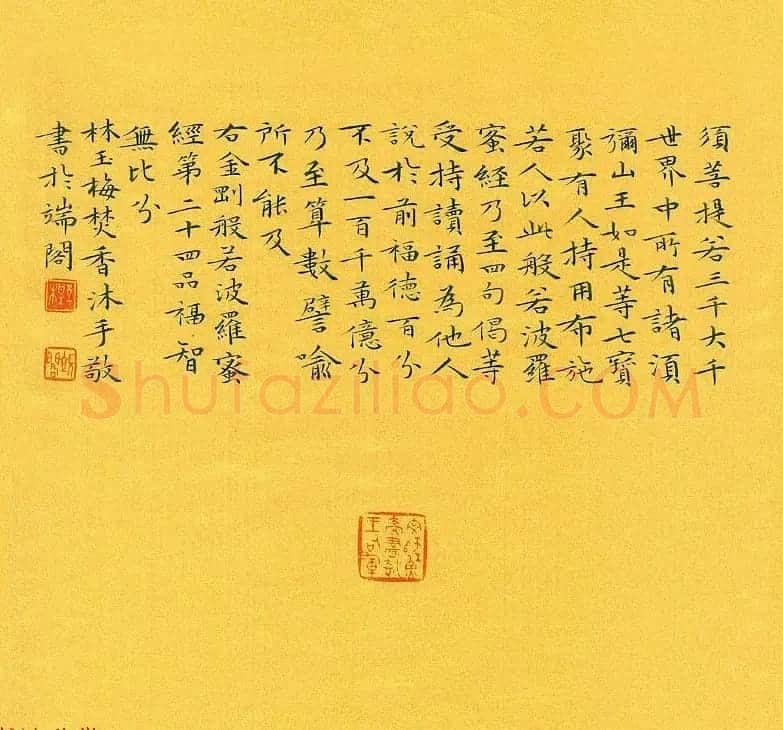 須菩提若三千大千
世界中所有諸須
彌山王如是等七寶
聚有人持用布施
若人以此般若波羅
蜜經乃至四句偈等
受持讀誦為他人
說於前福德百分
不及一百千萬億分
乃至算數譬喻
所不能及
右金剛般若波羅蜜
經第二十四品福智
無比分
林玉梅焚香沐手敬
書於端閣
Shufaziliao.COM